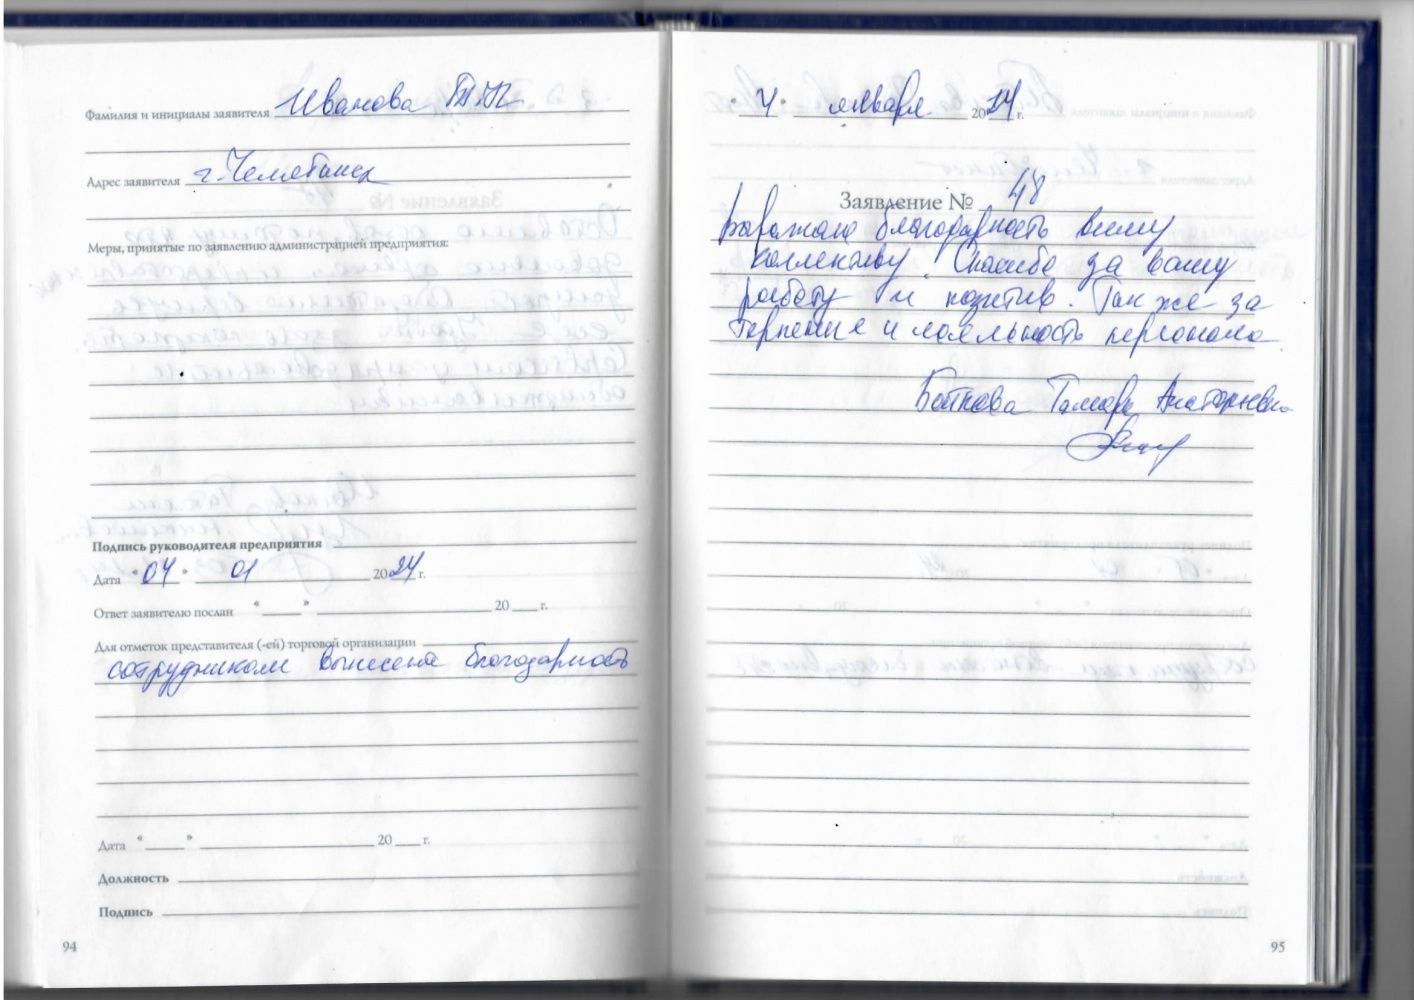 Фамилия и инициалы заявителя Иванова Т.Н.
Адрес заявителя г. Челябинск
Меры, принятые по заявлению администрацией предприятия:
Подпись руководителя предприятия
Дата "04" 01 2024 г.
Ответ заявителю послан " " 20 г.
Для отметок представителя (-ей) торговой организации
сотрудникам вынесена благодарность
Дата " " 20 г.
Должность
Подпись
94
"4" января 2024 г.
Заявление № 48
Выражаю благодарность вашему
коллективу. Спасибо за вашу
работу и позитив. Так же за
терпение и лояльность персонала.
Тамара
95